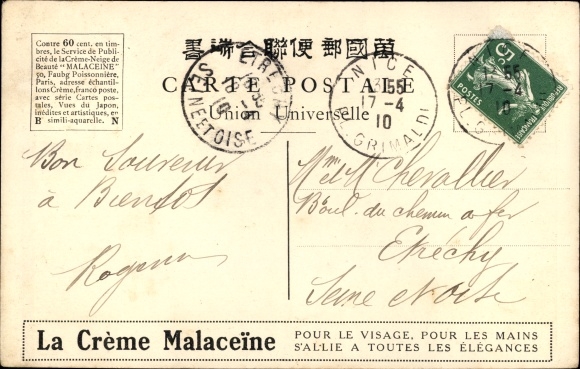 Contre 60 cent. en tim-
bres, le Service de Publi-
cité de la Crème-Neige de
Beauté "MALACEINE"
50, Faubg Poissonnière,
Paris, adresse échantil-
lons Crème, franco poste,
avec série Cartes pos-
tales, Vues du Japon,
inédites et artistiques, en
B simili-aquarelle. N
書端合聯便郵國萬
CARTE POSTALE
Union Universelle
ETRECHY
SNE ET OISE
NICE
1 55
17 - 4
10
AL. GRIMALDI
POSTES
Bon Souvenir
à Bientôt
Mme et M Chevallier
Boul. du chemin de fer
Etréchy
Seine et Oise
La Crème Malaceïne
POUR LE VISAGE, POUR LES MAINS
S'ALLIE A TOUTES LES ÉLÉGANCES